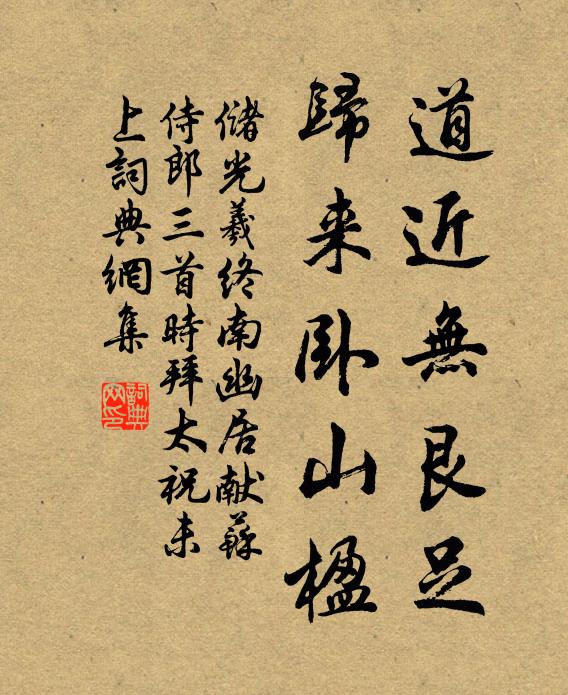 道近無艮足
歸来卧山楹
儲光羲終南幽居献蘇
侍郎三首時拜太祝未
上詞典網集
詞典网印